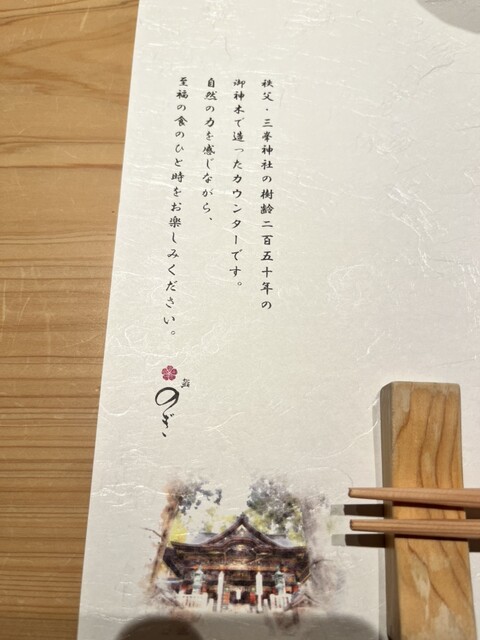 秩父・三峯神社の樹齢二百五十年の
御神木で造ったカウンターです。
自然の力を感じながら、
至福の食のひと時をお楽しみください。
鮨
のぎ、